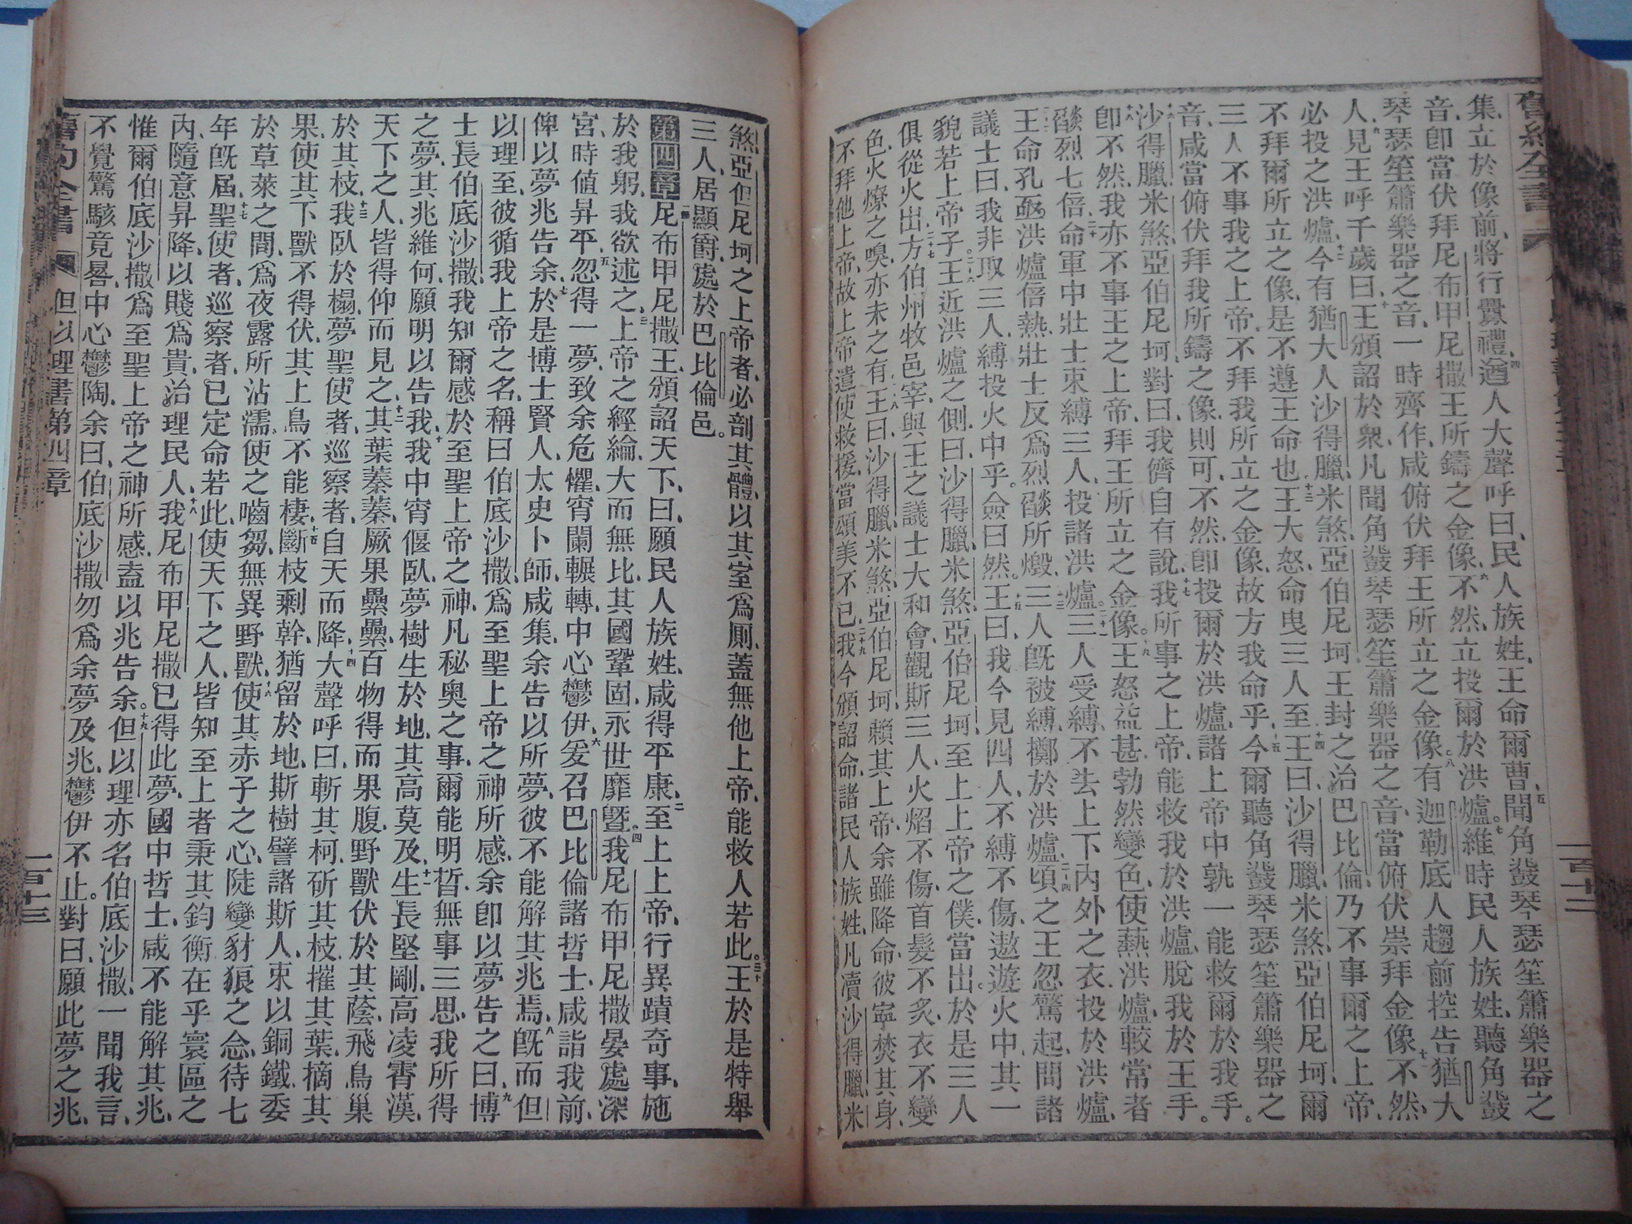 舊約全書
一百十二
集立於像前、將行釁禮、遒人大聲呼曰、民人族姓、王命爾曹、聞角鼗琴瑟笙簫樂器之
音、卽當伏拜尼布甲尼撒王所鑄之金像、不然、立投爾於洪爐、維時民人族姓、聽角鼗
琴瑟笙簫樂器之音、一時齊作、咸俯伏拜王所立之金像、有迦勒底人趨前控告猶大
人、見王呼千歲曰、王頒詔於衆、凡聞角鼗琴瑟笙簫樂器之音、當俯伏崇拜金像、不然、
必投之洪爐、今有猶大人沙得臘米煞亞伯尼坷、王封之治巴比倫、乃不事爾之上帝、
不拜爾所立之像、是不遵王命也、王大怒、命曳三人至、王曰、沙得臘米煞亞伯尼坷、爾
三人不事我之上帝、不拜我所立之金像、故方我命乎、今爾聽角鼗琴瑟笙簫樂器之
音、咸當俯伏拜我所鑄之像則可、不然、卽投爾於洪爐、諸上帝中孰一能救爾於我手。
沙得臘米煞亞伯尼坷對曰、我儕自有說、我所事之上帝、能救我於洪爐、脫我於王手。
卽不然、我亦不事王之上帝、拜王所立之金像、王怒益甚、勃然變色、使爇洪爐、較當者
燄烈七倍、命軍中壯士束縛三人、投諸洪爐、三人受縛、不去上下內外之衣、投於洪爐、
王命孔亟、洪爐倍熱、壯士反爲烈燄所燬、三人旣被縛擲於洪爐、頃之王忽驚起、問諸
議士曰、我非取三人縛投火中乎。僉曰然。王曰、我今見四人、不縛不傷、遨遊火中、其一
貌若上帝子、王近洪爐之側、曰、沙得臘米煞亞伯尼坷、至上上帝之僕、當出、於是三人
俱從火出、方伯州牧邑宰、與王之議士大和會、觀斯三人、火焰不傷、首髮不炙、衣不變
色、火燎之嗅、亦未之有、王曰、沙得臘米煞亞伯尼坷、賴其上帝、余雖降命、彼寧焚其身、
不拜他上帝、故上帝遣使救援、當頌美不已、我今頒詔命諸民人族姓、凡瀆沙得臘米
煞亞伯尼坷之上帝者、必剖其體、以其室爲厠、蓋無他上帝、能救人若此。王於是特舉
三人、居顯爵、處於巴比倫邑。
第四章 尼布甲尼撒王頒詔天下、曰、願民人族姓、咸得平康、至上上帝、行異蹟奇事、施
於我躬、我欲述之、上帝之經綸、大而無比、其國鞏固、永世靡曁、我尼布甲尼撒、晏處深
宮、時值昇平、忽得一夢、致余危懼、宵闌輾轉、中心鬱伊、爰召巴比倫諸哲士、咸詣我前、
俾以夢兆告余、於是博士賢人太史卜師咸集、余告以所夢、彼不能解其兆焉、旣而但
以理至、彼循我上帝之名、稱曰伯底沙撒、爲至聖上帝之神所感、余卽以夢告之曰、博
士長伯底沙撒、我知爾感於至聖上帝之神、凡秘奧之事、爾能明晢、無事三思、我所得
之夢、其兆維何、願明以告我、我中宵偃臥、夢樹生於地、其高莫及、生長堅剛、高凌霄漢、
天下之人、皆得仰而見之、其葉蓁蓁、厥果纍纍、百物得而果腹、野獸伏於其蔭、飛鳥巢
於其枝、我臥於榻、夢聖使者、巡察者、自天而降、大聲呼曰、斬其柯、斫其枝、摧其葉、摘其
果、使其下獸不得伏、其上鳥不能棲、斷枝剩幹、猶留於地、斯樹譬諸斯人、束以銅鐵、委
於草萊之間、爲夜露所沾濡、使之嚙芻、無異野獸、使其赤子之心、陡變豺狼之念、待七
年旣屆、聖使者巡察者、已定命若此、使天下之人、皆知至上者秉其鈞衡、在乎寰區之
內、隨意昇降、以賤爲貴、治理民人、我尼布甲尼撒、已得此夢、國中哲士、咸不能解其兆、
惟爾伯底沙撒、爲至聖上帝之神所感、盍以兆告余。但以理亦名伯底沙撒、一聞我言、
不覺驚駭、竟晷中心鬱陶、余曰、伯底沙撒、勿爲余夢及兆、鬱伊不止。對曰、願此夢之兆、
舊約全書
但以理書第四章
一百十三